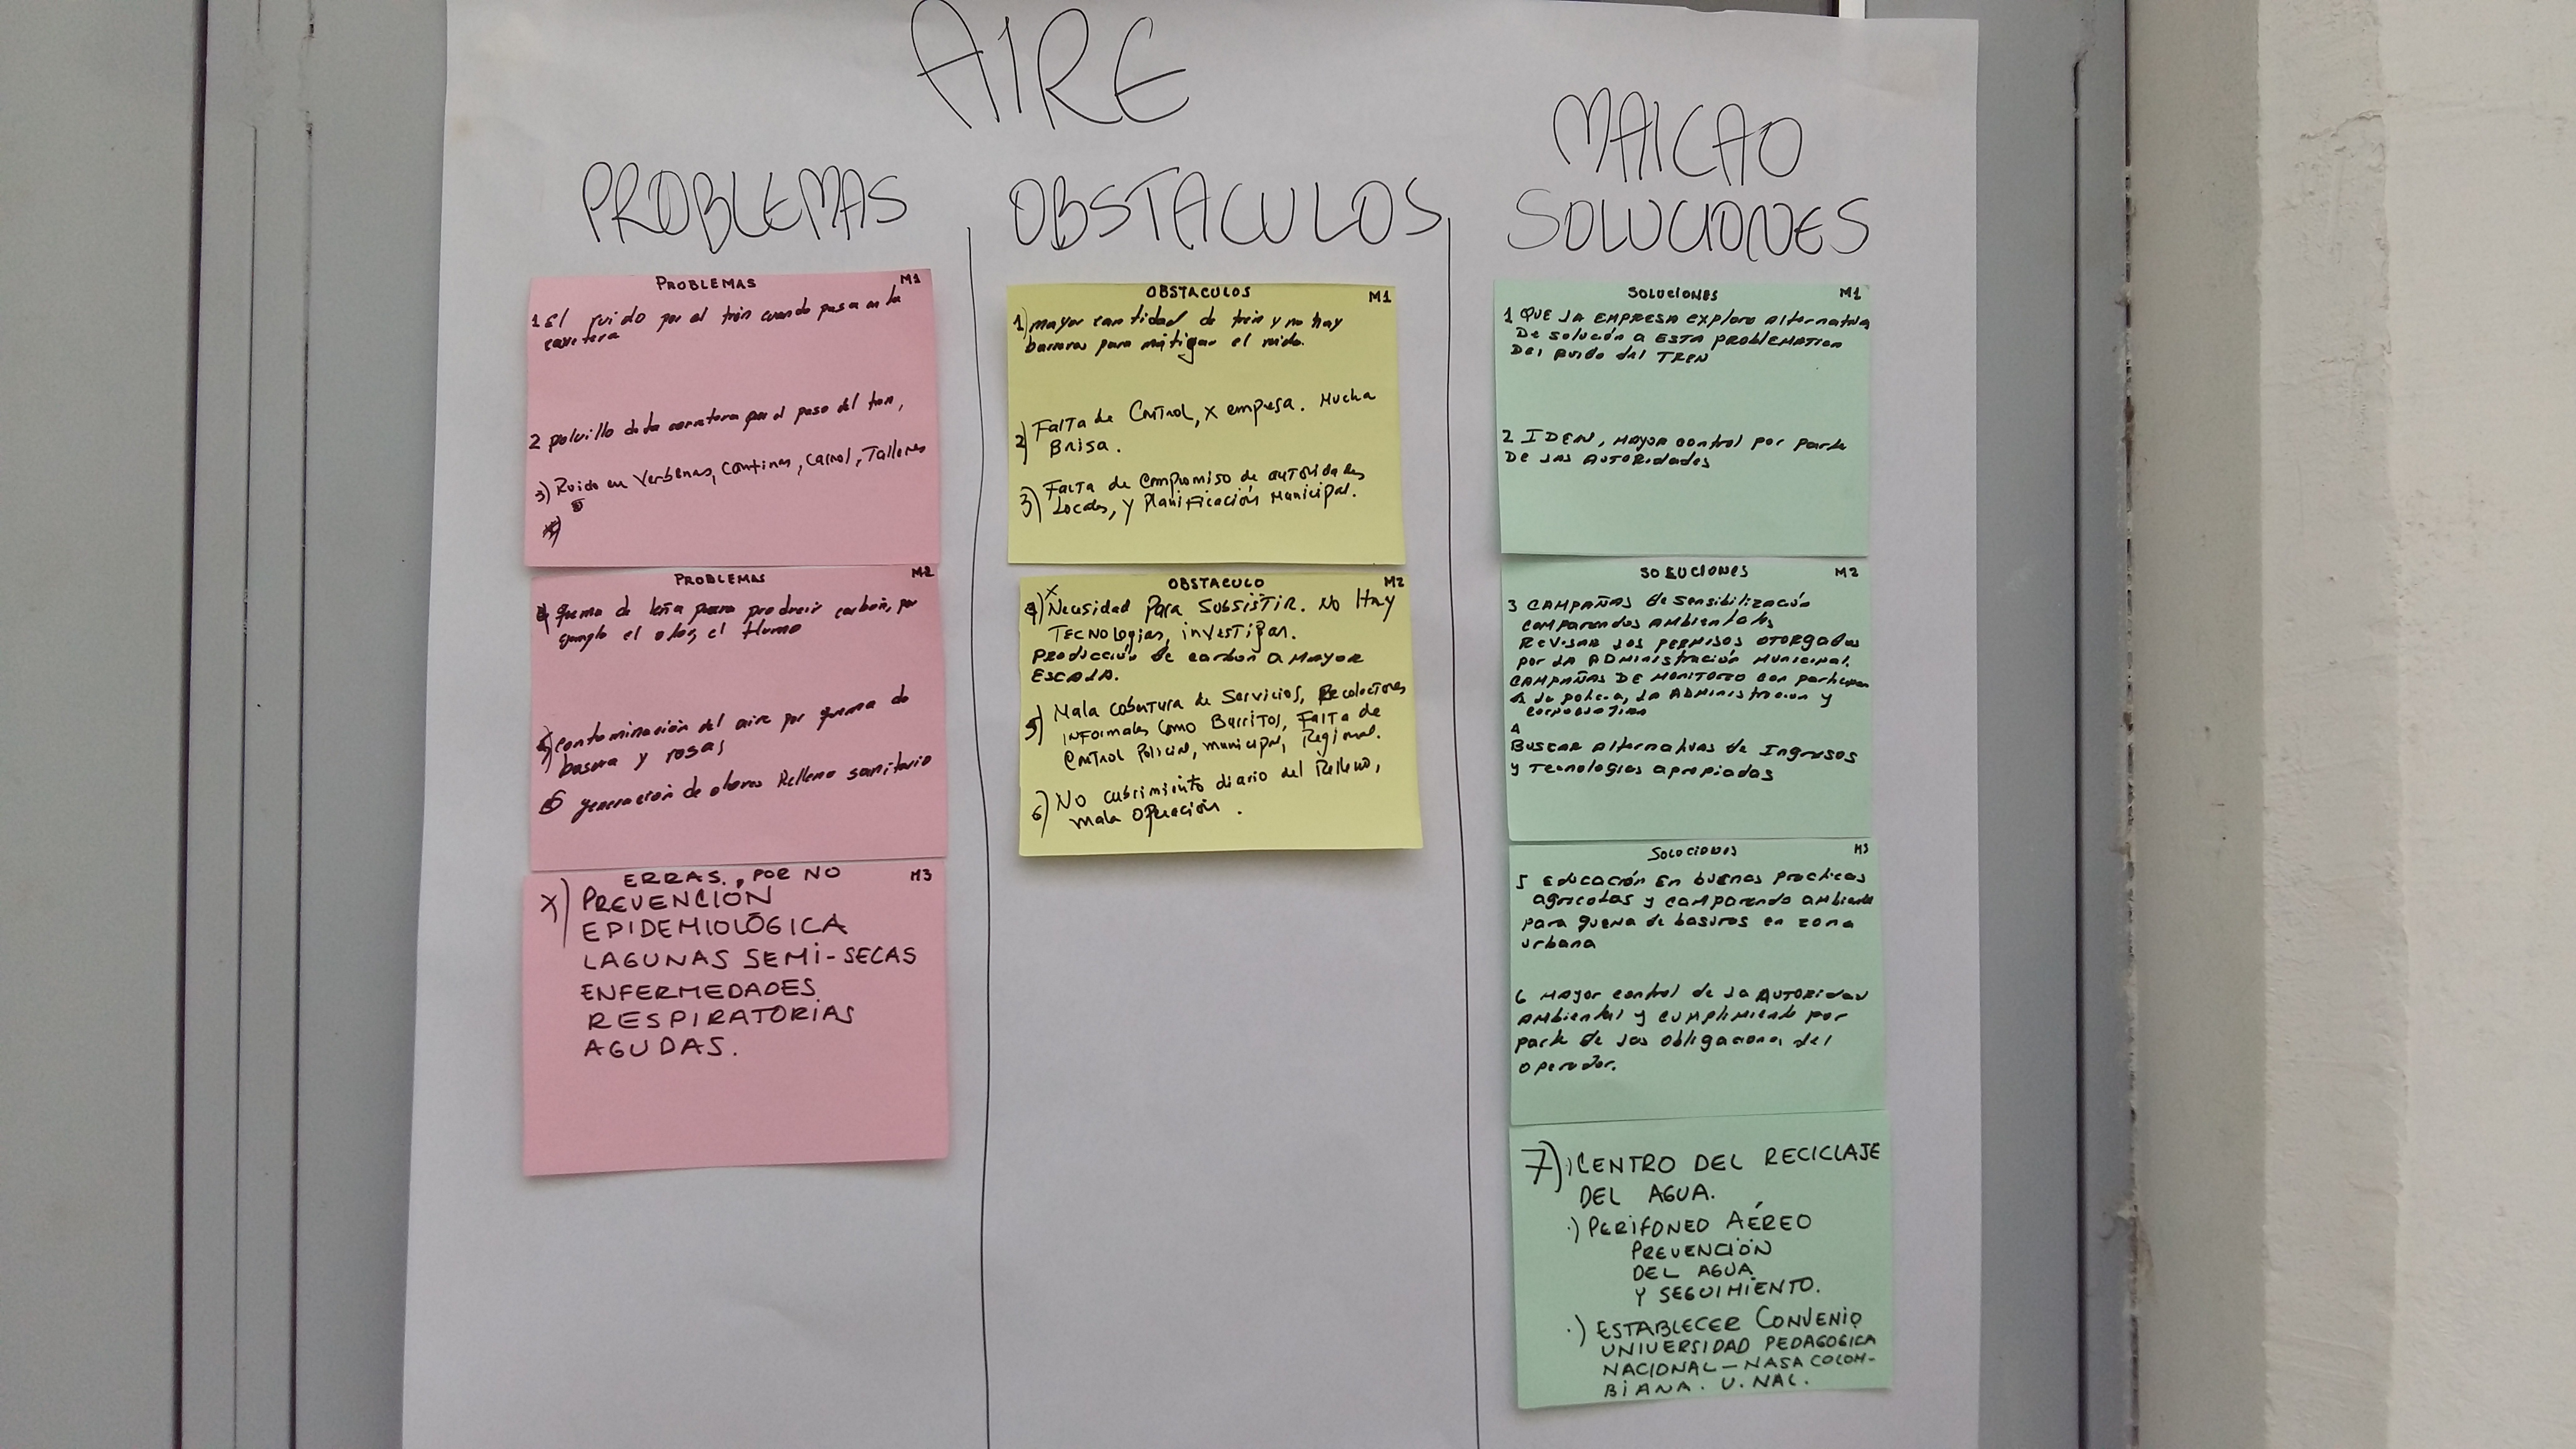 AIRE
MAICAO
PROBLEMAS
OBSTACULOS
SOLUCIONES
PROBLEMAS M1
1 El ruido por el tren cuando pasa en la
carretera
2 polvillo de la carretera por el paso del tren,
3) Ruido en Verbenas, Cantinas, Carnal, Talleres
PROBLEMAS M2
quema de leña para producir carbon, por
ejemplo el olor, el Humo
contaminación del aire por quema de
basura y rosas
6 generación de olores Relleno sanitario
M3
ERRAS., POR NO
X) PREVENCIÓN
EPIDEMIOLÓGICA
LAGUNAS SEMI-SECAS
ENFERMEDADES
RESPIRATORIAS
AGUDAS.
OBSTACULOS M1
1) mayor cantidad de tren y no hay
barreras para mitigar el ruido.
2) Falta de Control, x empresa. Mucha
Brisa.
3) Falta de Compromiso de autoridades
Locales, y Planificación Municipal.
OBSTACULO M2
4) Necesidad Para Subsistir. No Hay
TECNOLogias, investigar.
Producción de carbon a MAYOR
ESCALA.
5) Mala cobertura de Servicios, Recolectores
INFormales Como Burritos, Falta de
Control Policial, municipal, Regional.
6) No cubrimiento diario del Relleno,
mala Operación.
SOLUCIONES M1
1 QUE LA EMPRESA explore alternativa
De solución a ESTA PROBLEMATICA
Del Ruido del TREN
2 IDEN, MAYOR control por parte
DE LAS AUTORidades
SOLUCIONES M2
3 CAMPAÑAS de sensibilización
comparendos AMbientales
REVISAR LOS PERMISOS OTORGADOS
por LA ADMINISTRACIÓN MUNICIPAL.
CAMPAÑAS DE MONITOREO con
de policia, LA ADMINISTRACION y
4
BUSCAR alternativas de Ingresos
y Tecnologias apropiadas
Soluciones M3
5 Educación En buenas practicas
agricolas y comparendo
para quema de basuras en zona
urbana
6 MAYOR control de la AUTORIDAD
AMbiental y cumplimiento por
parte de las obligaciones del
operador.
7) ·) CENTRO DEL RECICLAJE
DEL AGUA.
·) PERIFONEO AÉREO
PREVENCIÓN
DEL AGUA
Y SEGUIMIENTO.
·) ESTABLECER CONVENIO
UNIVERSIDAD PEDAGOGICA
NACIONAL – NASA COLOM-
BIANA. U. NAL.